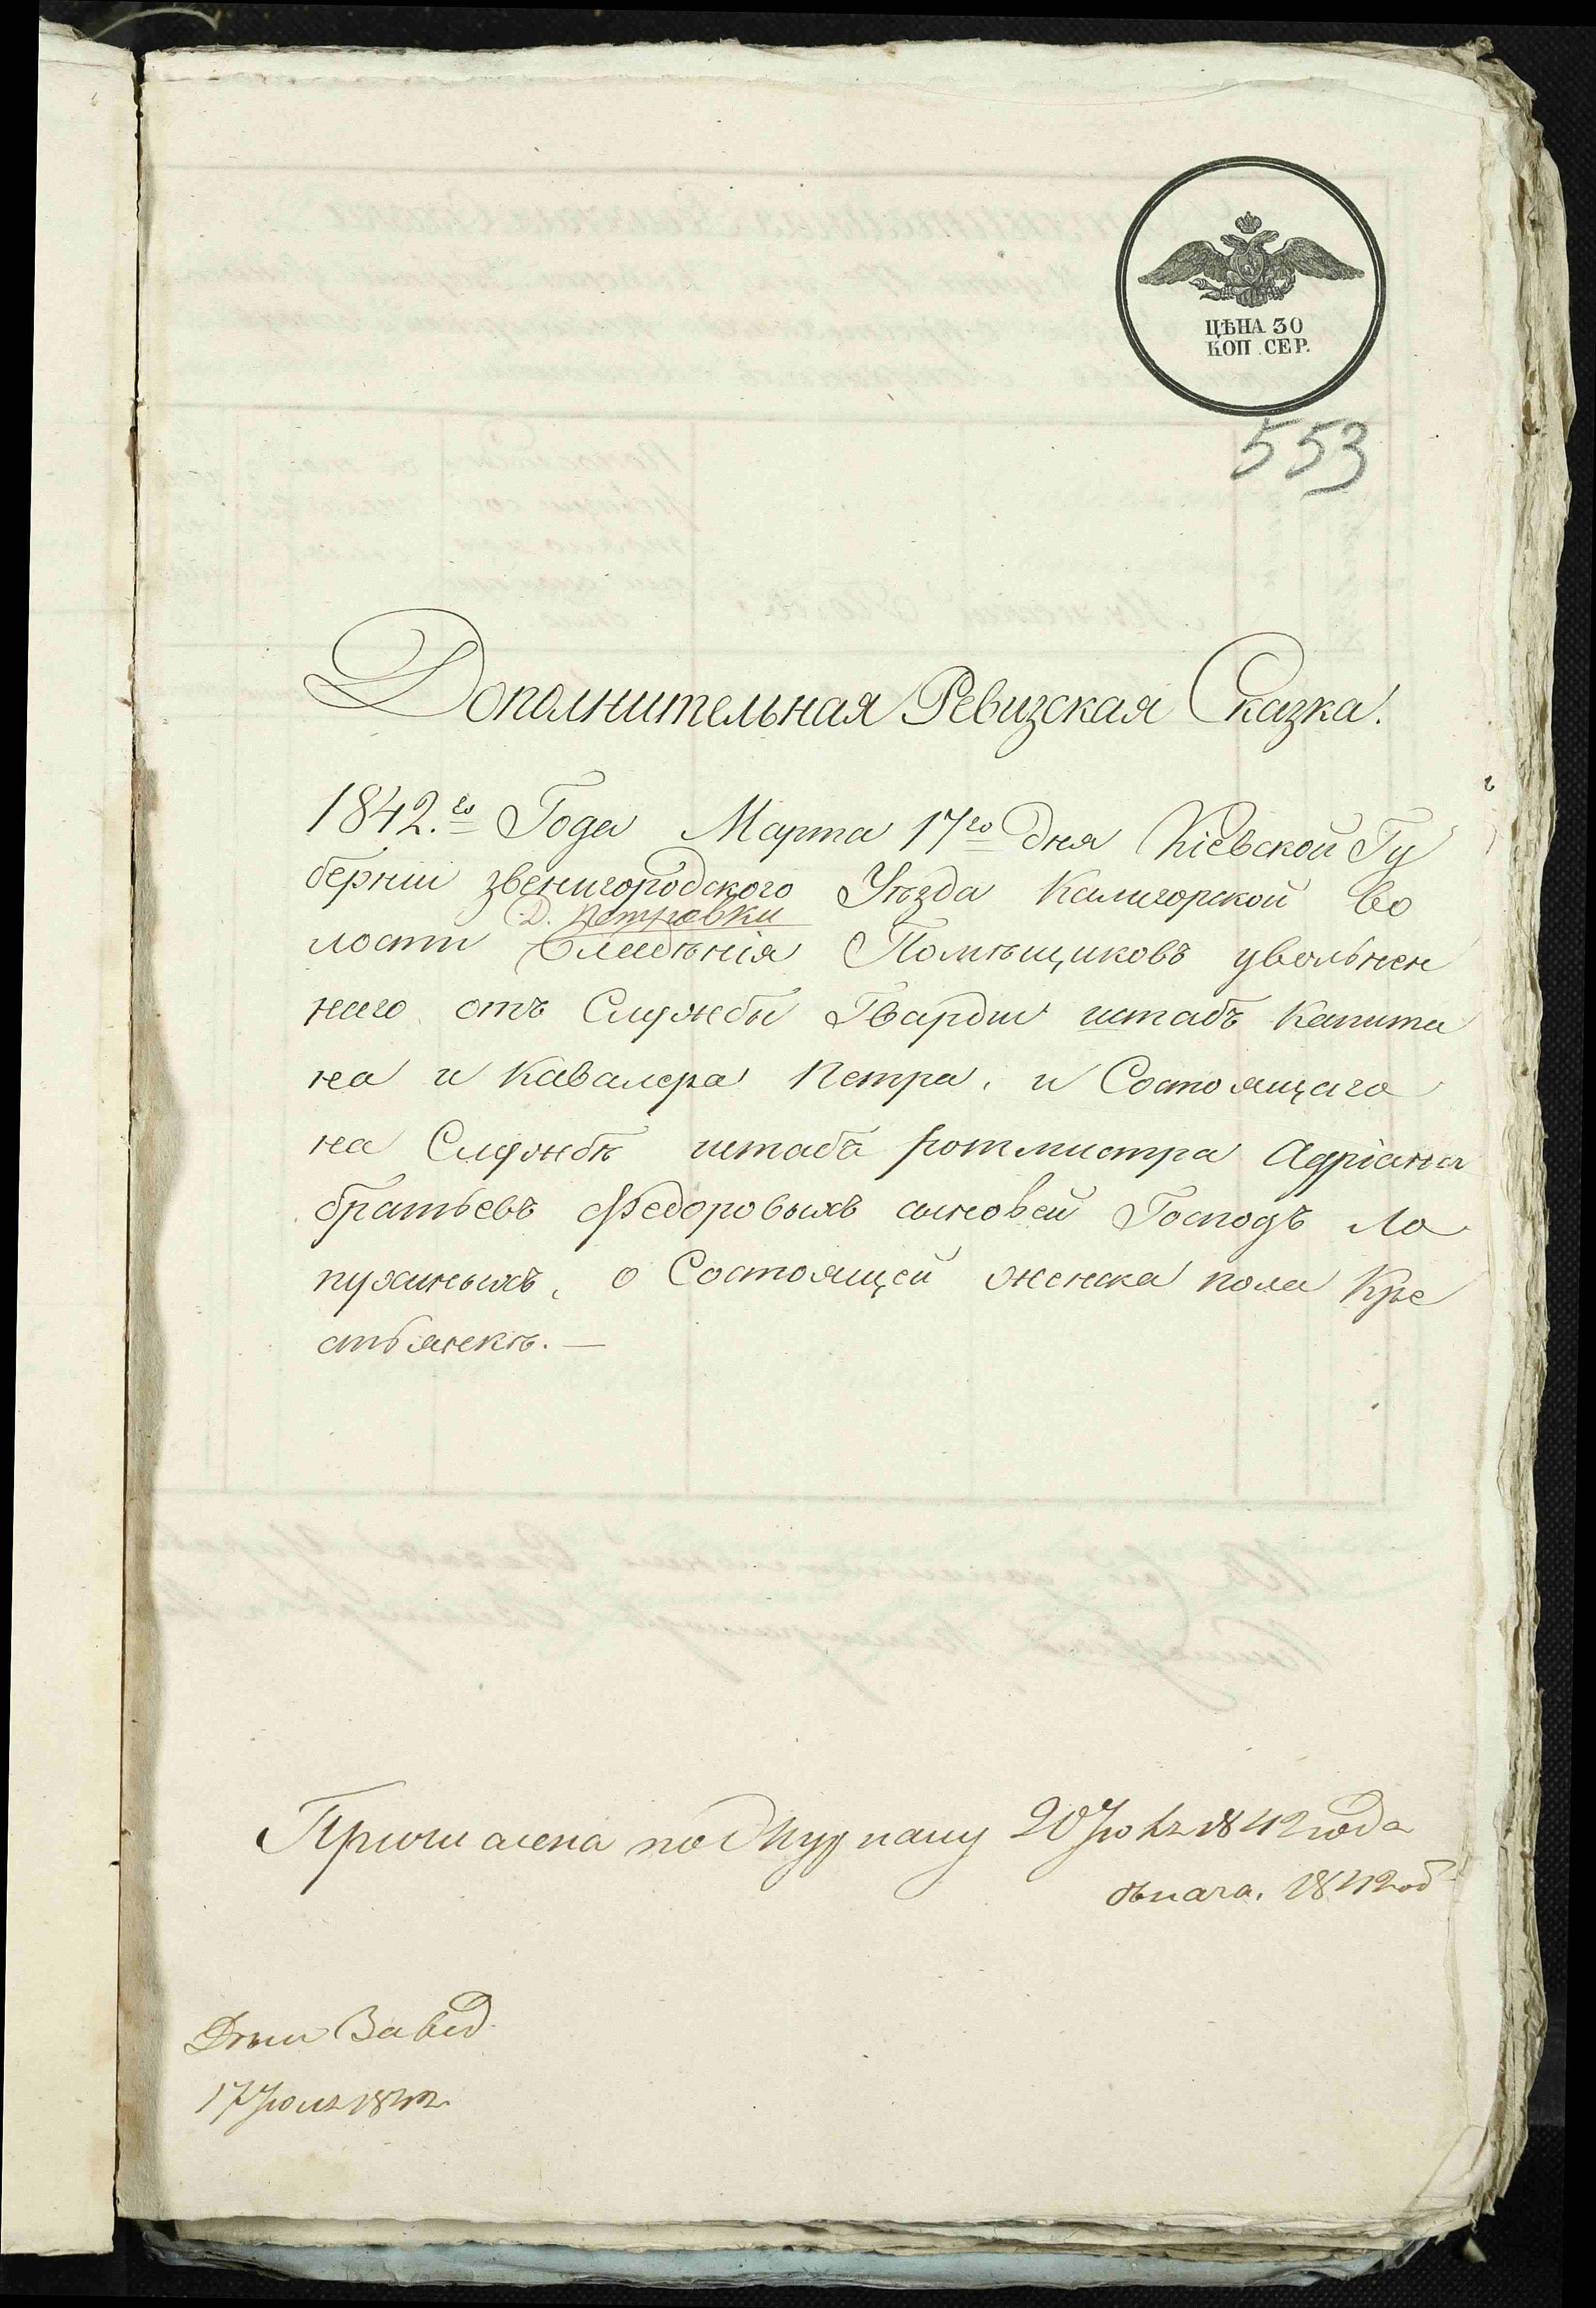 ЦѢНА 30
КОП. СЕР.
553
Дополнительная Ревизская Сказка.
1842.го Года Марта 17го дня Кіевской Гу
берніи звенигородского Уѣзда Калигорской во
Д. Петровки
лости Владѣнія Помѣщиковъ увольнен
наго отъ Службы Гвардіи штабъ Капита
на и Кавалера Петра, и Состоящаго
на Службѣ штабъ ротмистра Адріана
братьевъ Федоровыхъ сыновей Господъ Ло
пухиныхъ, о Состоящей женска пола Кре
стьянкѣ. —
20 1842 года
1842
17 Іюля 1842